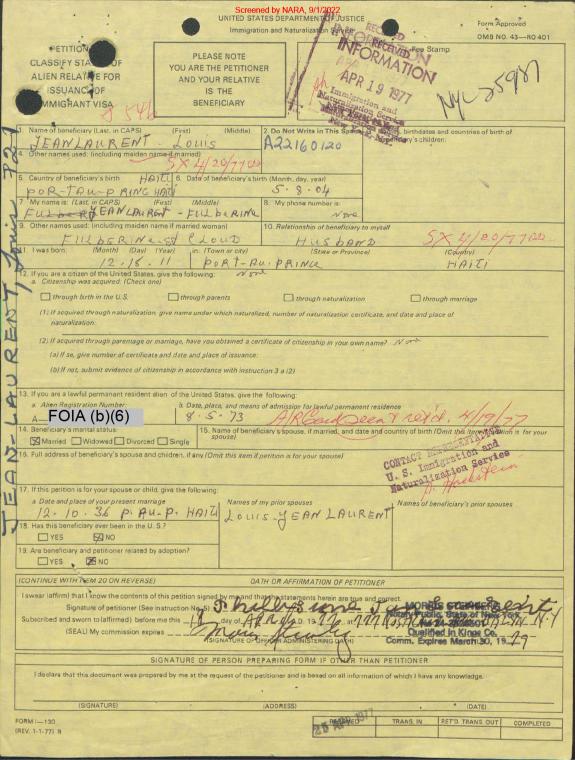 Screened by NARA, 9/1/2022
UNITED STATES DEPARTMENT OF JUSTICE
Immigration and Naturalization Service
Form Approved
OMB NO. 43—RO 401
PETITION
CLASSIFY STATUS OF
ALIEN RELATIVE FOR
ISSUANCE OF
IMMIGRANT VISA
PLEASE NOTE
YOU ARE THE PETITIONER
AND YOUR RELATIVE
IS THE
BENEFICIARY
Fee Stamp
RECEIVED
INFORMATION
APR 19 1977
Immigration and
Naturalization Service
JEAN-LAURENT, Louis
3. Name of beneficiary (Last, in CAPS) (First) (Middle)
JEAN LAURENT - Louis
2. Do Not Write in This Space
birthdates and countries of birth of
children:
A22160120
4. Other names used: (including maiden name if married)
SX 4/20/77
5. Country of beneficiary's birth HAITI
PORT-AU-PRINCE HAITI
6. Date of beneficiary's birth (Month, day, year)
5.8.04
7. My name is: (Last, in CAPS) (First) (Middle)
JEAN LAURENT - FULBERINE
8. My phone number is:
None
9. Other names used: (including maiden name if married woman)
10. Relationship of beneficiary to myself
HUSBAND
SX 4/20/77
11. I was born: (Month) (Day) (Year) in: (Town or city) (State or Province) (Country)
12.16.11 PORT-AU-PRINCE HAITI
12. If you are a citizen of the United States, give the following: None
a. Citizenship was acquired: (Check one)
through birth in the U.S. through parents through naturalization through marriage
(1) If acquired through naturalization, give name under which naturalized, number of naturalization certificate, and date and place of
naturalization:
(2) If acquired through parentage or marriage, have you obtained a certificate of citizenship in your own name?
(a) If so, give number of certificate and date and place of issuance:
(b) If not, submit evidence of citizenship in accordance with instruction 3 a (2)
13. If you are a lawful permanent resident alien of the United States, give the following:
a. Alien Registration Number: b. Date, place, and means of admission for lawful permanent residence
A— FOIA (b)(6) 8.5.73 4/19/77
14. Beneficiary's marital status:
Married Widowed Divorced Single
15. Name of beneficiary's spouse, if married, and date and country of birth (Omit this if petition is for your
spouse)
16. Full address of beneficiary's spouse and children, if any (Omit this item if petition is for your spouse)
CONTACT REPRESENTATIVE
U. S. Immigration and
Naturalization Service
17. If this petition is for your spouse or child, give the following:
a. Date and place of your present marriage
12.10.36 P.AU-P. HAITI
Names of my prior spouses
LOUIS-JEAN LAURENT
Names of beneficiary's prior spouses
18. Has this beneficiary ever been in the U.S.?
YES NO
19. Are beneficiary and petitioner related by adoption?
YES NO
(CONTINUE WITH ITEM 20 ON REVERSE) OATH OR AFFIRMATION OF PETITIONER
I swear (affirm) that I know the contents of this petition signed by me and that the statements herein are true and correct.
Signature of petitioner (See instruction No. 5)
Subscribed and sworn to (affirmed) before me this day of A.D. 19 at
(SEAL) My commission expires
(SIGNATURE OF OFFICER ADMINISTERING OATH)
Notary Public, State of New York
Qualified in Kings Co.
Comm. Expires March 30, 1979
SIGNATURE OF PERSON PREPARING FORM IF OTHER THAN PETITIONER
I declare that this document was prepared by me at the request of the petitioner and is based on all information of which I have any knowledge.
(SIGNATURE) (ADDRESS) (DATE)
FORM I—130
(REV. 1-1-77) N
TRANS. IN RET'D. TRANS OUT COMPLETED